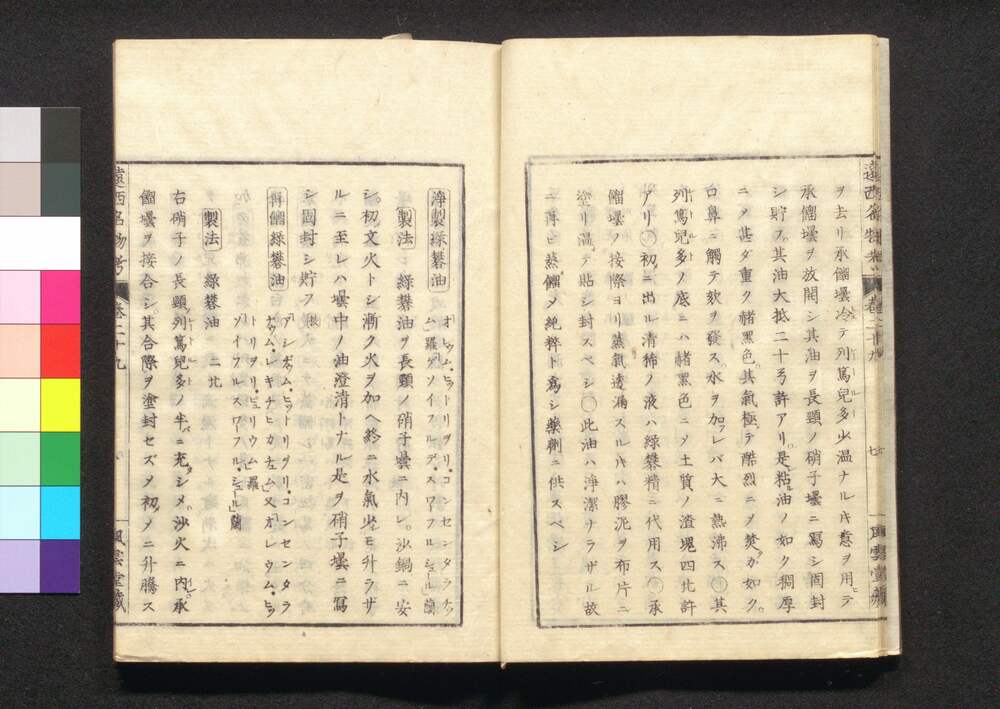 遠西名物考 卷二十九 七 風雲堂藏
ヲ去リ承餾壜冷テ列篤兒多少温ナルキ意ヲ用テ
承餾壜ヲ放開シ其油ヲ長頸ノ硝子壜ニ寫シ固封
シ貯フ。其油大抵二十弓許アリ。是粘油ノ如ク稠厚
ニメ甚ダ重ク赭黑色。其氣極テ酷烈ニメ焚ガ如ク。
口鼻ニ觸テ欬ヲ發ス。水ヲ加レバ大ニ熱沸ス 其
列篤兒多ノ底ニハ赭黑色ニメ土質ノ渣塊四北許
アリ 初ニ出ル清稀ノ液ハ綠礬精ニ代用ス 承
餾壜ノ接際ヨリ蒸氣透漏スルキハ膠泥ヲ布片ニ
塗リ温テ貼シ封スベシ 此油ハ淨潔ナラザル故
ニ再ビ蒸餾メ純粹ト爲シ藥劑ニ供スベシ
淨製綠礬油 オヒウム・ヒトリヲリ・コンセンタラチュム 羅 デソイフルデ・スワフルシュール 蘭
製法 綠礬油ヲ長頸ノ硝子壜ニ内レ。沙鍋ニ安
シ。初文火トシ漸ク火ヲ加ヘ終ニ水氣少モ升ラザ
ルニ至レハ壜中ノ油澄清トナル是ヲ硝子壜ニ寫
シ固封シ貯フ
再餾綠礬油 アシデュム・ヒットリヲリ・コンセンタラ
チュウム・レキチヒカチュム 又オレウム・ヒッ
トリヲリ・ピュリウム 羅
ソイフルスワフル・シュール 蘭
製法 綠礬油 二北
右硝子ノ長頸列篤兒多ノ半ニ充シメ。沙火ニ内承
餾壜ヲ接合シ。其合際ヲ塗封セズメ初メニ升騰ス
遠西名物考 卷二十九 八 風雲堂藏